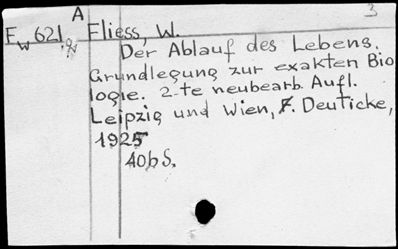 A 3
Ew 621 Fliess, W.
Der Ablauf des Lebens.
Grundlegung zur exakten Bio
logie. 2-te neubearb. Aufl.
Leipzig und Wien, F. Deuticke,
1925
406 S.